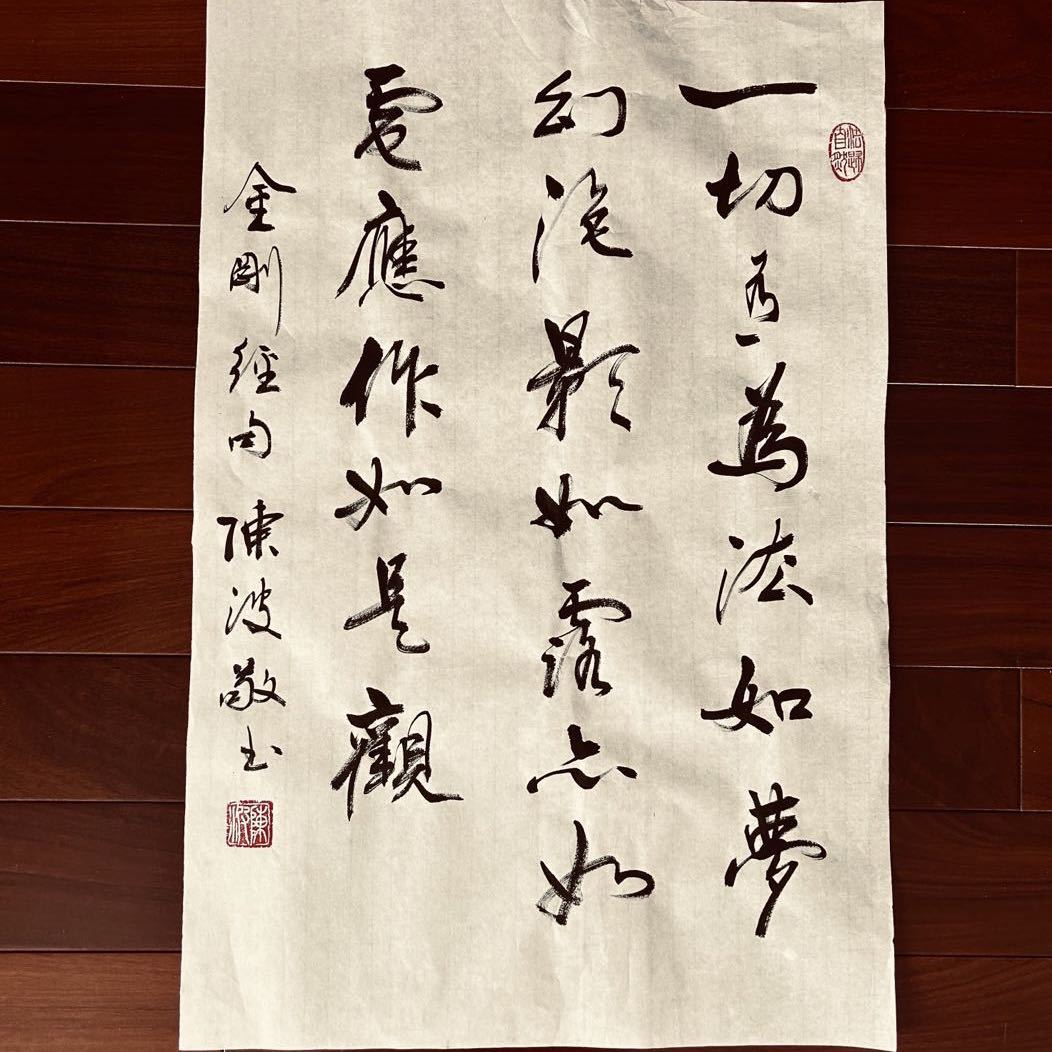 一切有為法如夢
幻泡影如露亦如
電應作如是觀
金剛經句 陳波敬书
法歸自然
陳波